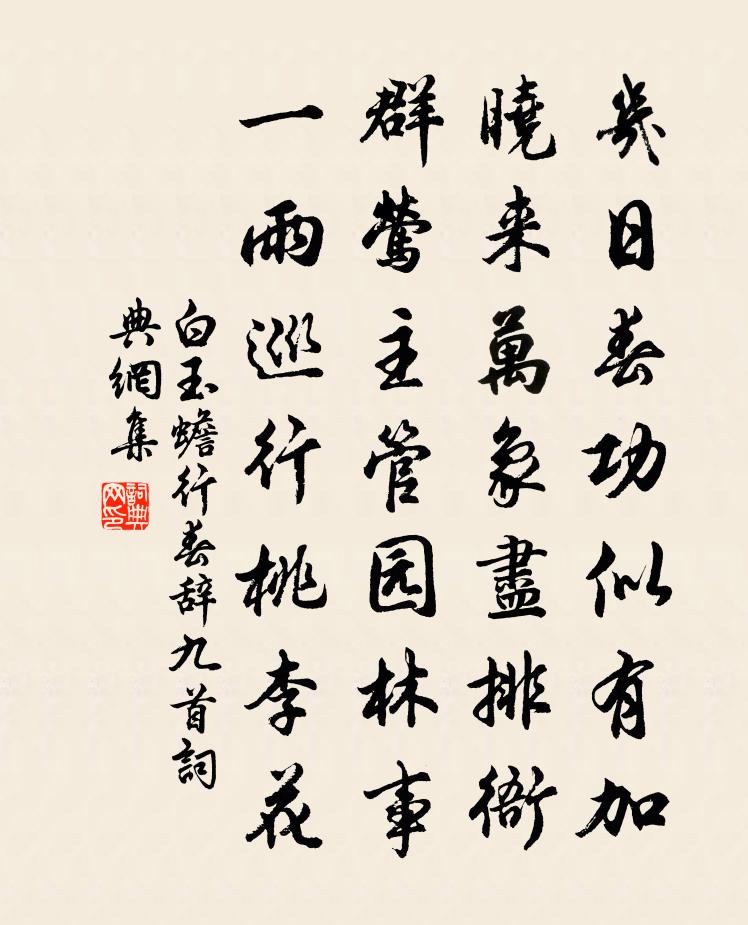 幾日春功似有加
曉来萬象盡排衙
群鶯主管园林事
一雨巡行桃李花
白玉蟾行春辞九首詞
典網集
詞典网印